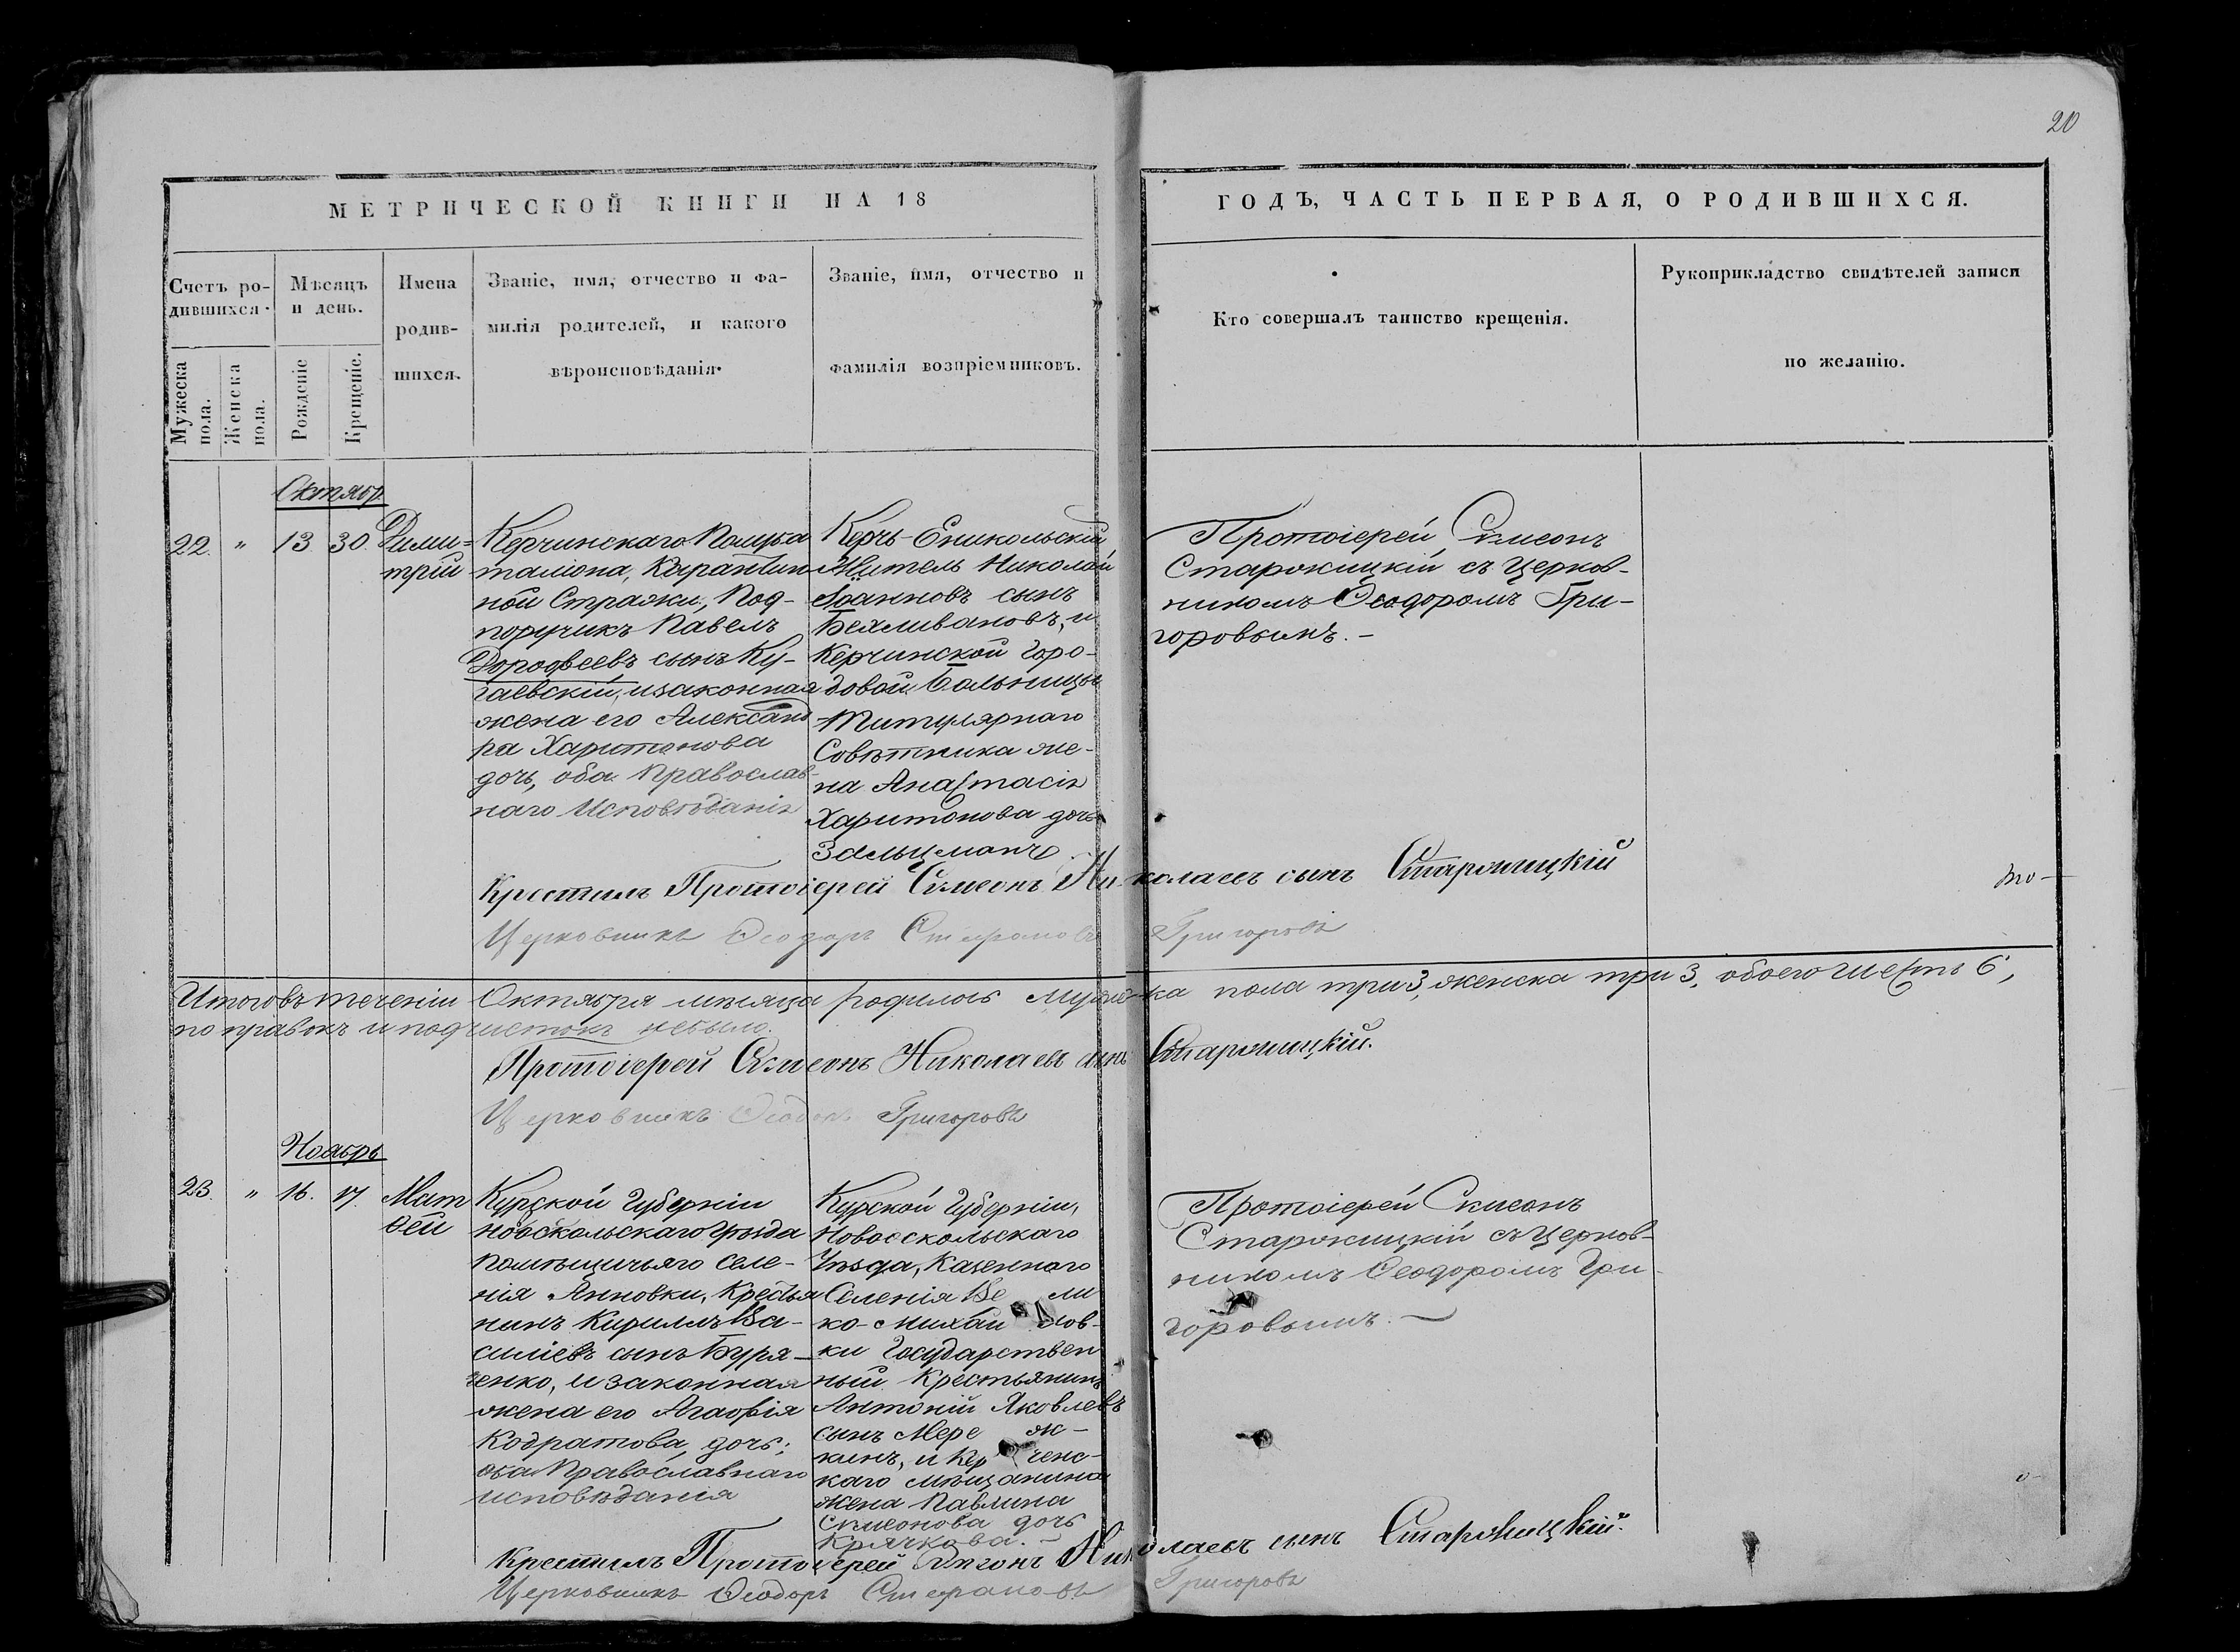 20
МЕТРИЧЕСКОЙ КНИГИ НА 18
ГОДЪ, ЧАСТЬ ПЕРВАЯ, О РОДИВШИХСЯ.
Счетъ ро-
дившихся.
Мужеска
пола.
Женска
пола.
Мѣсяцъ
и день.
Рожденіе
Крещеніе.
Имена
родив-
шихся.
Званіе, имя, отчество и фа-
милія родителей, и какого
вѣроисповѣданія.
Званіе, имя, отчество и
фамилія воспріемниковъ.
Кто совершалъ таинство крещенія.
Рукоприкладство свидѣтелей записи
по желанію.
Октябр.
22. " 13 30.
Дими=
трій
Керчинскаго Полуба
таліона, Карантин
ной Стражи, Под-
поручикъ Павелъ
Дородѳеевъ сынъ Ку-
гаевскій, и законная
жена его Александ
ра Харитонова
дочь, оба Православ-
наго Исповѣданія
Керчь-Еникольскій
Житель Николай
Іоанновъ сынъ
Бехливановъ, и
Керчинской Горо-
довой Больницы
Титулярнаго
Совѣтника же-
на Анастасія
Харитонова дочь
Зальцманъ.
Протоіерей Симеонъ
Старожицкій съ Церков-
никомъ Ѳеодоромъ Гри-
горовымъ.-
Крестилъ Протоіерей Симеонъ Николаевъ сынъ Старожицкій
то-
Церковникъ Ѳеодоръ Стефановъ Григоровъ
Итого въ теченіи Октября мѣсяца родилось мужеска пола три 3, женска три 3, обоего шесть 6,
поправокъ и подчистокъ небыло.
Протоіерей Симеонъ Николаевъ сынъ Старожицкій.
Церковникъ Ѳеодоръ Григоровъ
Ноябрь
23. " 16. 17.
Мат
ѳей
Курской Губерніи
Новоскольскаго Уѣзда
Помѣщичьяго Селе-
нія Анновки, Крестья
нинъ Кириллъ Ва-
силіевъ сынъ Буря-
ченко, и законная
жена его Агаѳія
Кодратова, дочь;
оба Православнаго
исповѣданія
Курской Губерніи,
Новооскольскаго
Уѣзда, Казеннаго
Селенія Ве ли
ко-Михай лов-
ки Государствен
ный Крестьянинъ
Антоній Яковлевъ
сынъ Мере ж-
кинъ, и Кер ченс-
каго мѣщанина
жена Павлина
Симеонова дочь
Крячкова.-
Протоіерей Симеонъ
Старожицкій съ Церков-
никомъ Ѳеодоромъ Гри-
горовымъ.-
о-
Крестилъ Протоіерей Симеонъ Николаевъ сынъ Старожицкій.
Церковникъ Ѳеодоръ Стефановъ Григоровъ